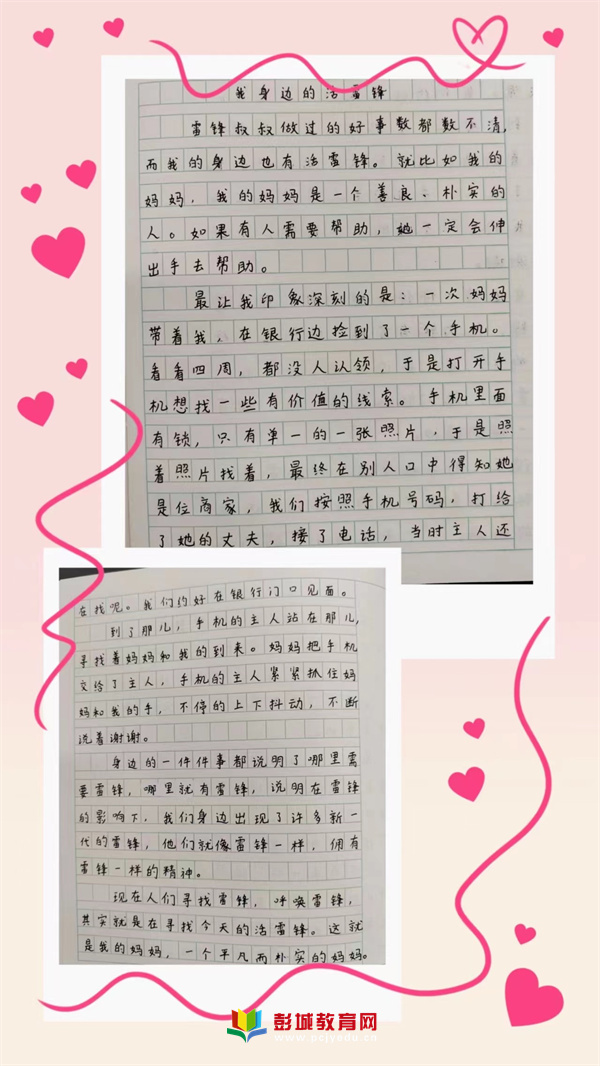 我身边的活雷锋
雷锋叔叔做过的好事数都数不清,
而我的身边也有活雷锋。就比如我的
妈妈,我的妈妈是一个善良、朴实的
人。如果有人需要帮助,她一定会伸
出手去帮助。
最让我印象深刻的是:一次妈妈
带着我,在银行边捡到了一个手机。
看看四周,都没人认领,于是打开手
机想找一些有价值的线索。手机里面
有锁,只有单一的一张照片,于是照
着照片找着,最终在别人口中得知她
是位商家,我们按照手机号码,打给
了她的丈夫,接了电话,当时主人还
在找呢。我们约好在银行门口见面。
到了那儿,手机的主人站在那儿,
寻找着妈妈和我的到来。妈妈把手机
交给了主人,手机的主人紧紧抓住妈
妈和我的手,不停的上下抖动,不断
说着谢谢。
身边的一件件事都说明了哪里需
要雷锋,哪里就有雷锋,说明在雷锋
的影响下,我们身边出现了许多新一
代的雷锋,他们就像雷锋一样,拥有
雷锋一样的精神。
现在人们寻找雷锋,呼唤雷锋,
其实就是在寻找今天的活雷锋。这就
是我的妈妈,一个平凡而朴实的妈妈。
彭城教育网